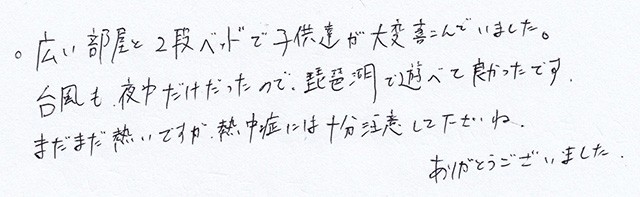 。広い部屋と2段ベッドで子供達が大変喜こんでいました。
台風も、夜中だけだったので、琵琶湖で遊べて良かったです.
まだまだ熱いですが、熱中症には十分注意して下さいね.
ありがとうございました.